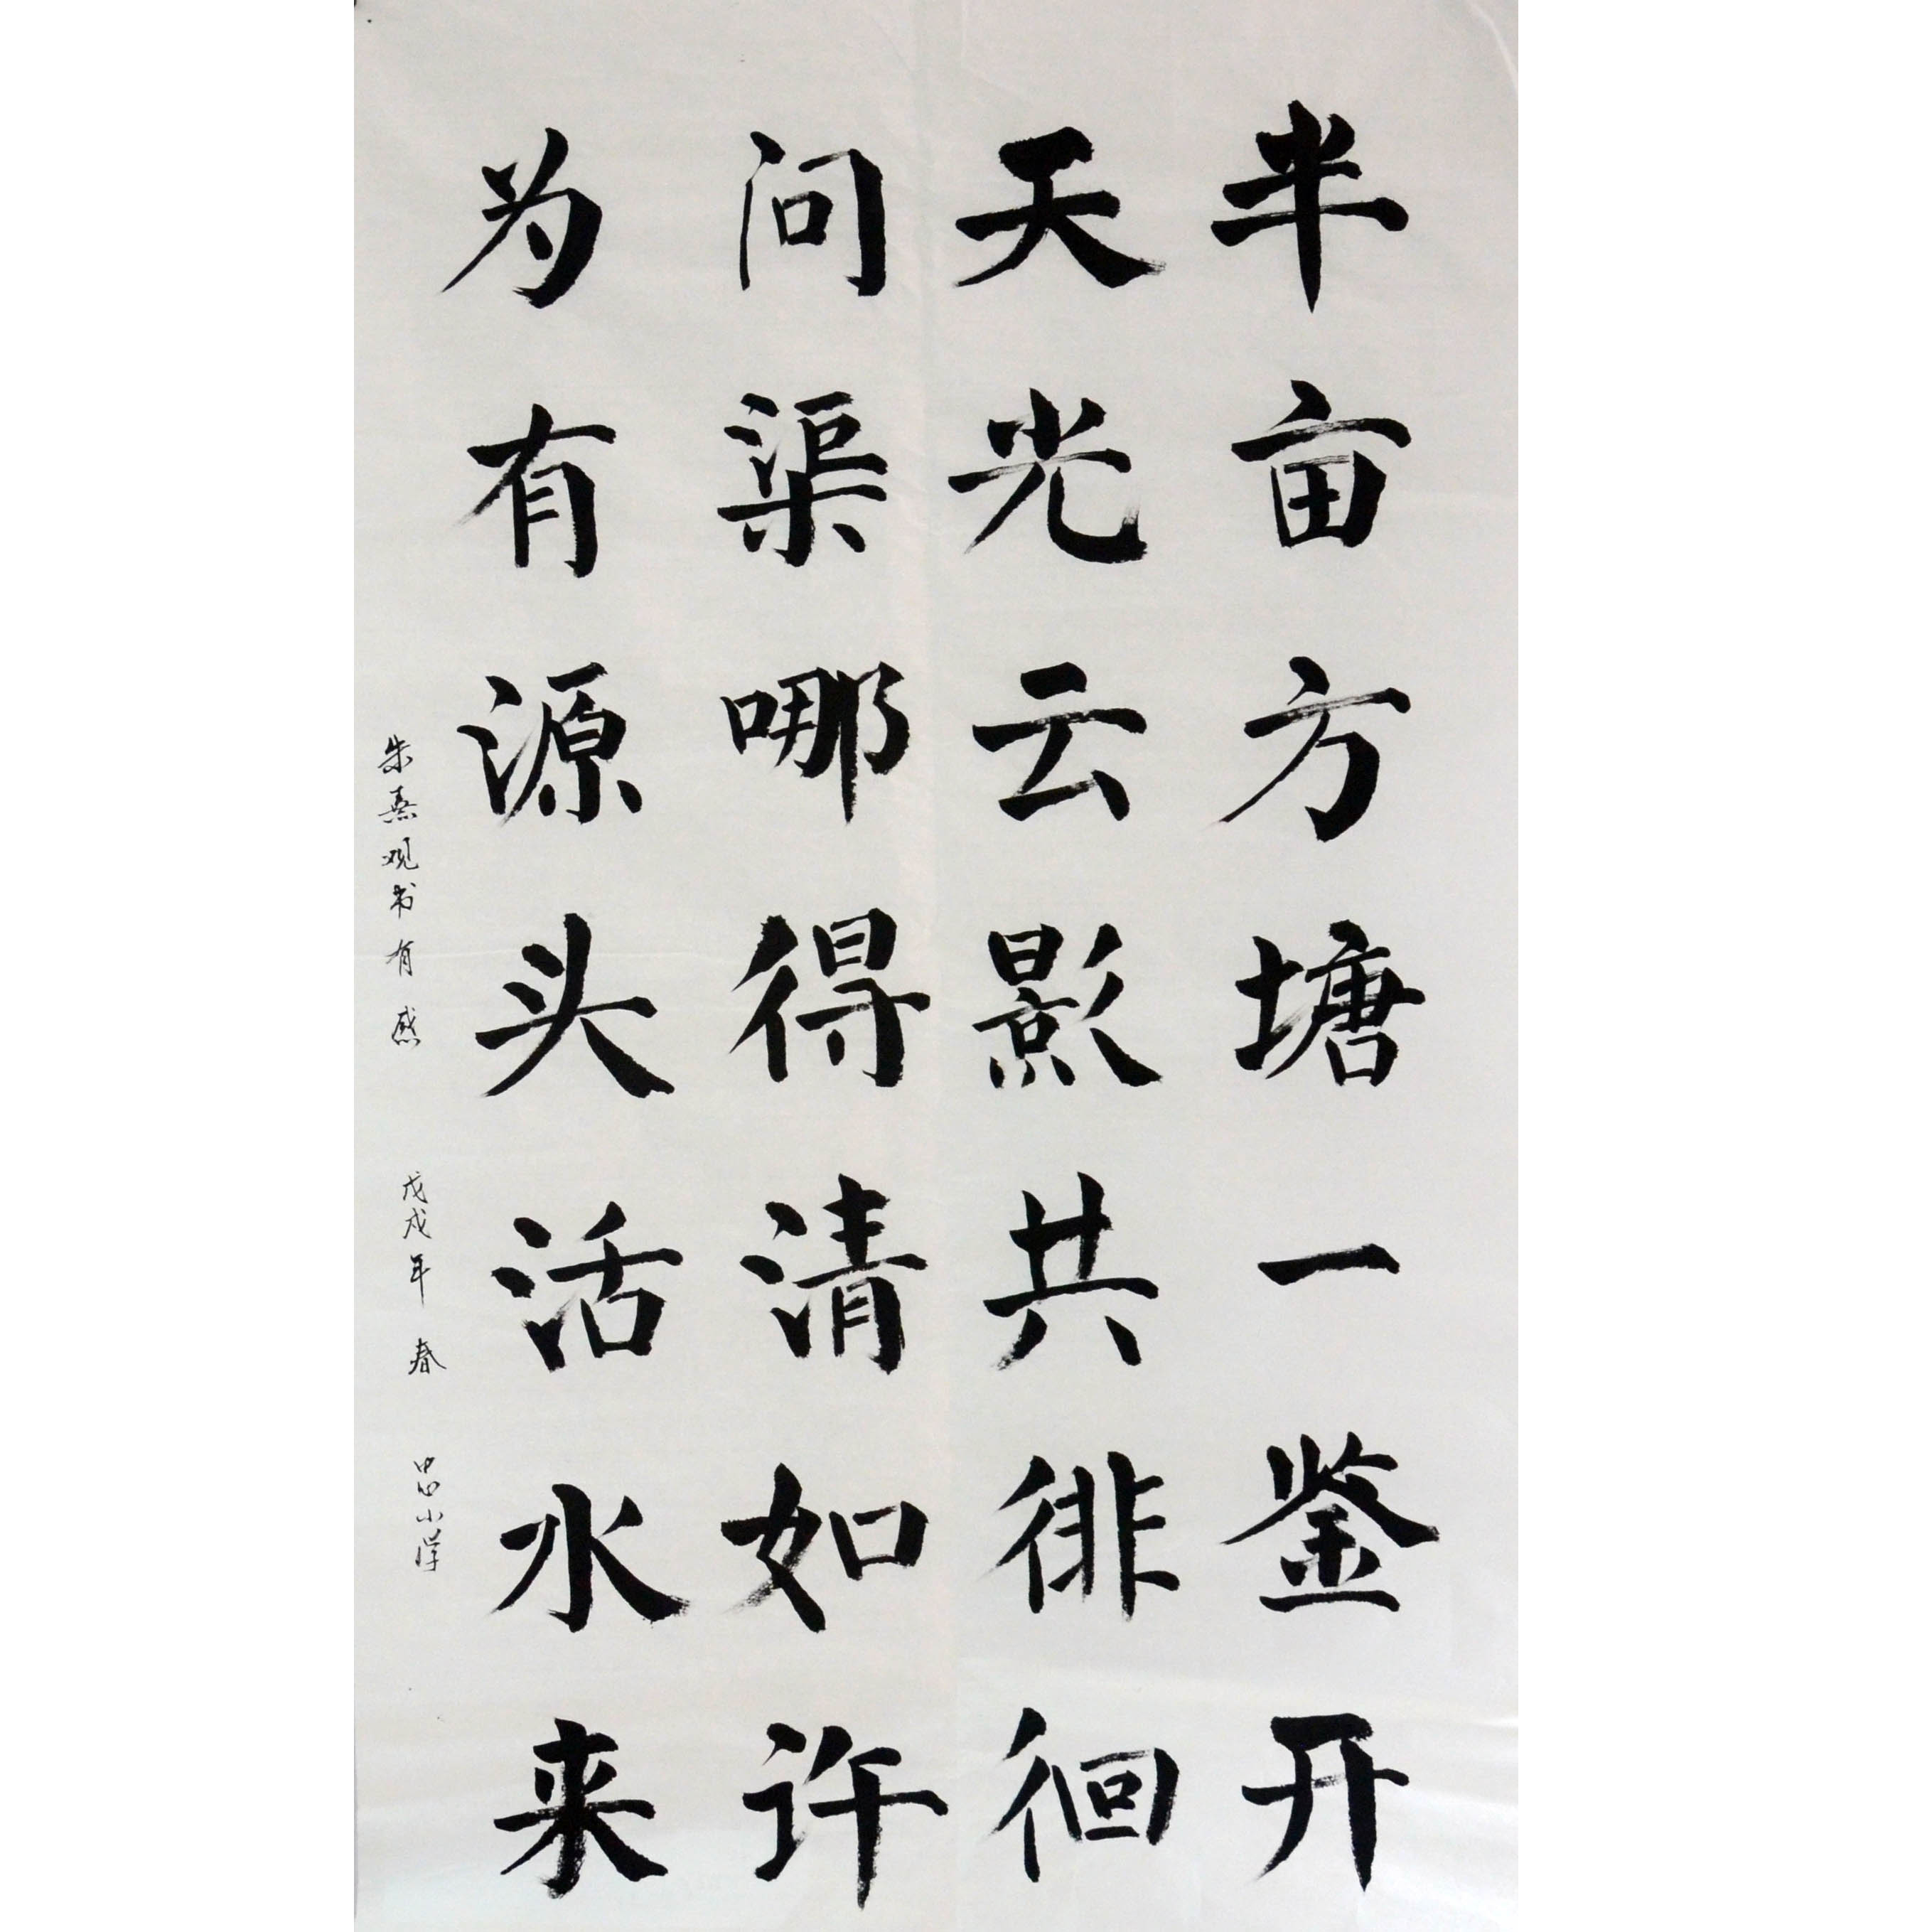 半亩方塘一鉴开
天光云影共徘徊
问渠哪得清如许
为有源头活水来
朱熹观书有感 戊戌年春 忠小学